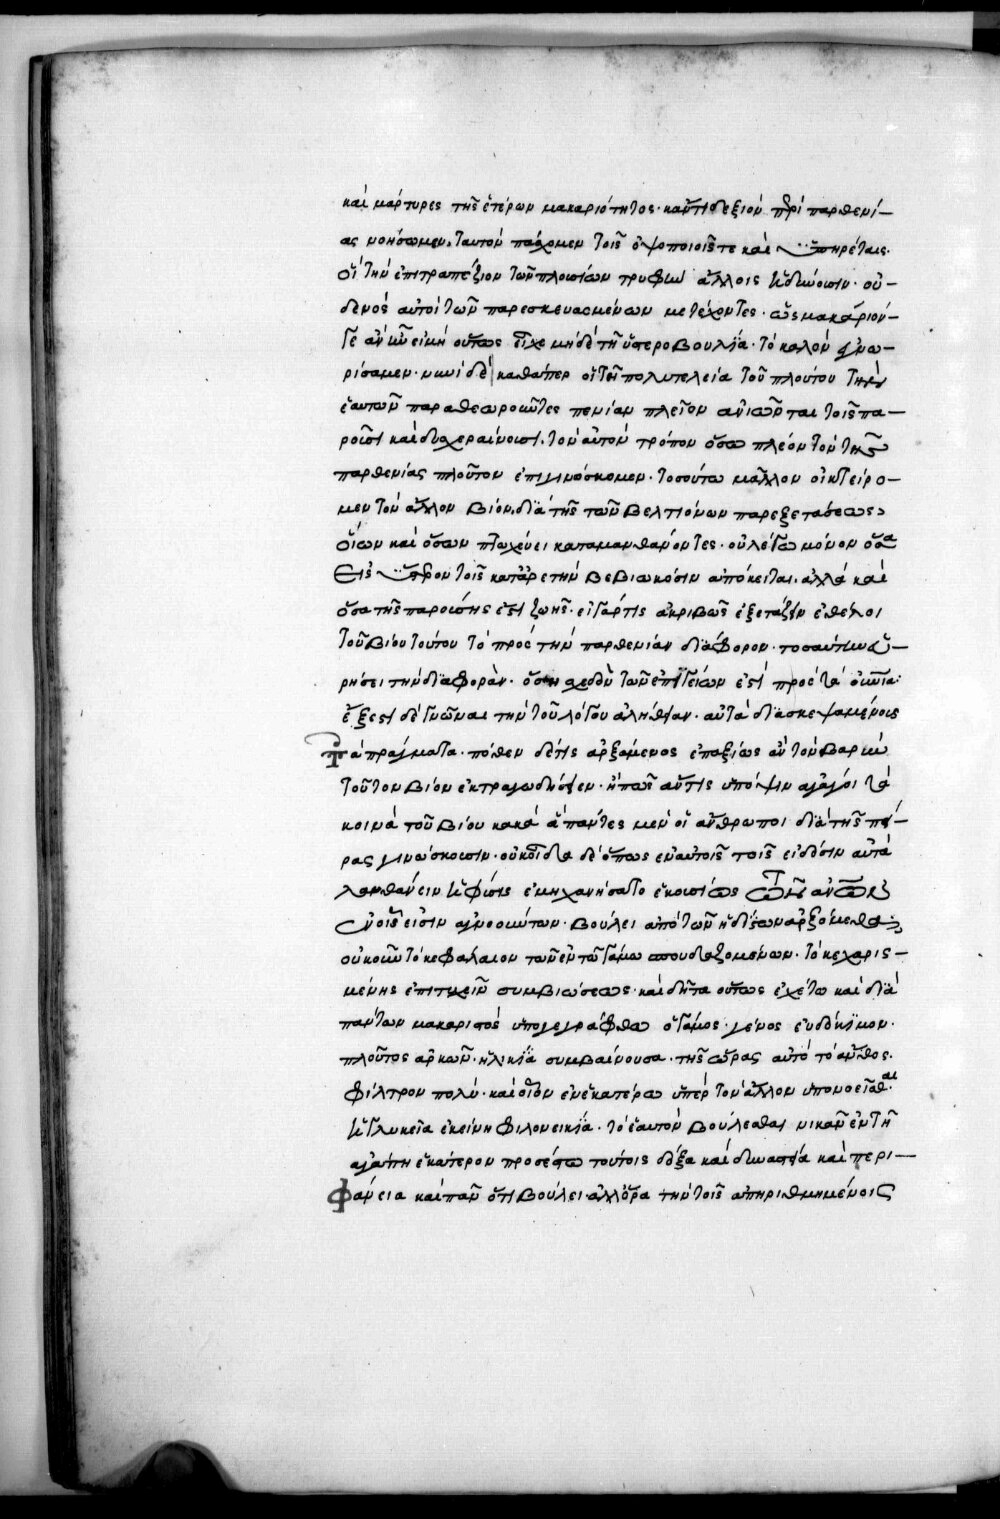 καὶ μάρτυρες τῆς ἑτέρων μακαριότητος· κἄν τι δεξιὸν περὶ παρθενί–
ας νοήσωμεν, ταυτὸν πάσχομεν τοῖς ὀψοποιοῖς τε καὶ ὑπηρέταις·
οἳ τὴν ἐπιτραπέζιον τῶν πλουσίων τρυφὴν ἄλλοις ἡδύνουσιν· οὐ–
δενὸς αὐτοὶ τῶν παρεσκευασμένων μετέχοντες· ὡς μακάριόν–
γε ἂν ἦν εἰ μὴ οὕτως εἶχε μηδὲ τῇ ὑστεροβουλίᾳ· τὸ καλὸν ἐγνω–
ρίσαμεν· νυνὶ δὲ καθάπερ οἱ τῇ πολυτελείᾳ τοῦ πλούτου τὴν
ἑαυτῶν παραθεωροῦντες πενίαν πλεῖον ἀνιῶνται τοῖς πα–
ροῦσι καὶ δυσχεραίνουσι, τὸν αὐτὸν τρόπον ὅσῳ πλέον τὸν τῆς
παρθενίας πλοῦτον ἐπιγινώσκομεν· τοσούτῳ μᾶλλον οἰκτείρο–
μεν τὸν ἄλλον βίον, διὰ τῆς τῶν βελτιόνων παρεξετάσεως,
οἵων καὶ ὅσων πτωχεύει καταμανθάνοντες· οὐ λέγω μόνον ὅσα
εἰς ὕστερον τοῖς κατ' ἀρετὴν βεβιωκόσιν ἀπόκειται, ἀλλὰ καὶ
ὅσα τῆς παρούσης ἐστὶ ζωῆς· εἰ γάρ τις ἀκριβῶς ἐξετάζειν ἐθέλοι
τοῦ βίου τούτου τὸ πρὸς τὴν παρθενίαν διάφορον· τοσαύτην εὑ–
ρήσει τὴν διαφορὰν· ὅση σχεδὸν τῶν ἐπιγείων ἐστὶ πρὸς τὰ οὐράνια·
ἔξεστι δὲ γνῶναι τὴν τοῦ λόγου ἀλήθειαν· αὐτὰ διασκεψαμένους
τὰ πράγματα· πόθεν δέ τις ἀρξάμενος ἐπαξίως ἂν τὸν βαρὺν
τοῦτον βίον ἐκτραγῳδήσειεν· ἢ πῶς ἄν τις ὑπ' ὄψιν ἀγάγοι τὰ
κοινὰ τοῦ βίου κακὰ ἃ πάντες μὲν οἱ ἄνθρωποι διὰ τῆς πεί–
ρας γινώσκουσιν· οὐκ οἶδα δὲ ὅπως ἐν αὐτοῖς τοῖς εἰδόσιν αὐτὰ
λανθάνειν ἡ φύσις ἐμηχανήσατο ἑκουσίως τῶν ἀνθρώπων
ἐν οἷς εἰσιν ἀγνοούντων· βούλει ἀπὸ τῶν ἡδίστων ἀρξόμεθα;
οὐκοῦν τὸ κεφάλαιον τῶν ἐν τῷ γάμῳ σπουδαζομένων· τὸ κεχαρισ–
μένης ἐπιτυχεῖν συμβιώσεως· καὶ δῆτα οὕτως ἐχέτω καὶ διὰ
πάντων μακαριστὸς ὑπογεγράφθω ὁ γάμος· γένος εὐδόκιμον·
πλοῦτος ἀρκῶν· ἡλικία συμβαίνουσα· τῆς ὥρας αὐτὸ τὸ ἄνθος·
φίλτρον πολὺ· καὶ οἷον ἐν ἑκατέρῳ ὑπὲρ τὸν ἄλλον ὑπονοεῖσθαι
ἡ γλυκεῖα ἐκείνη φιλονεικία· τὸ ἑαυτὸν βούλεσθαι νικᾶν ἐν τῇ
ἀγάπῃ ἑκάτερον προσέστω τούτοις δόξα καὶ δυναστεία καὶ περι–
φάνεια καὶ πᾶν ὅτι βούλει ἀλλ' ὅρα τὴν τοῖς ἀπηριθμημένοις